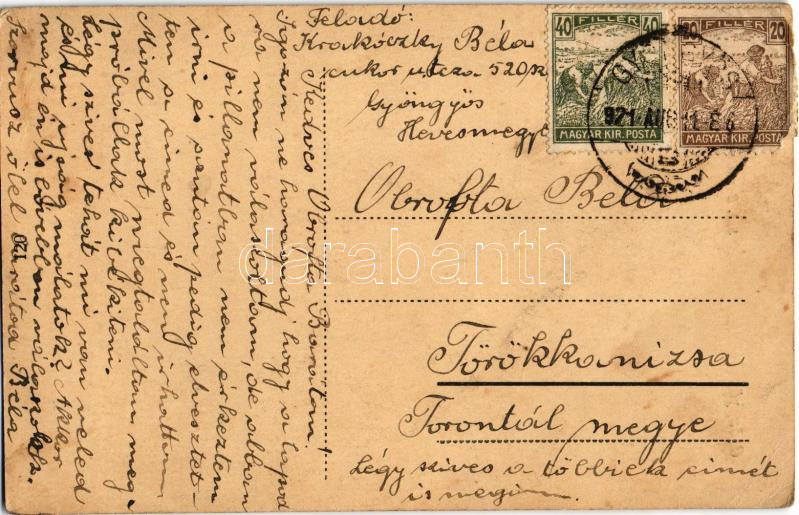 Feladó:
Krakóczky Béla
cukor utcza 520/sz
Gyöngyös
Hevesmegye
40 FILLÉR 40
MAGYAR KIR. POSTA
20 FILLÉR 20
MAGYAR KIR. POSTA
921 AUG
Obrofta Béla
Törökkanizsa
Torontál megye
Légy szives a többiek cimét
is megirni.
Kedves Obrofta Barátom!
Igazán ne haragudj hogy a lapod
ra nem válaszoltam, de abban
a pillanatban nem érkeztem
irni és azután pedig elvesztet-
tem a cimed és nem irhattam
Mivel most megtaláltam meg-
próbállak kiengesztelni.
Légy szives tehát mi van veled
és mi ujság nálatok? Akkor
majd én is bővebben válaszolok.
Szervusz ölel barátod Béla
darabanth